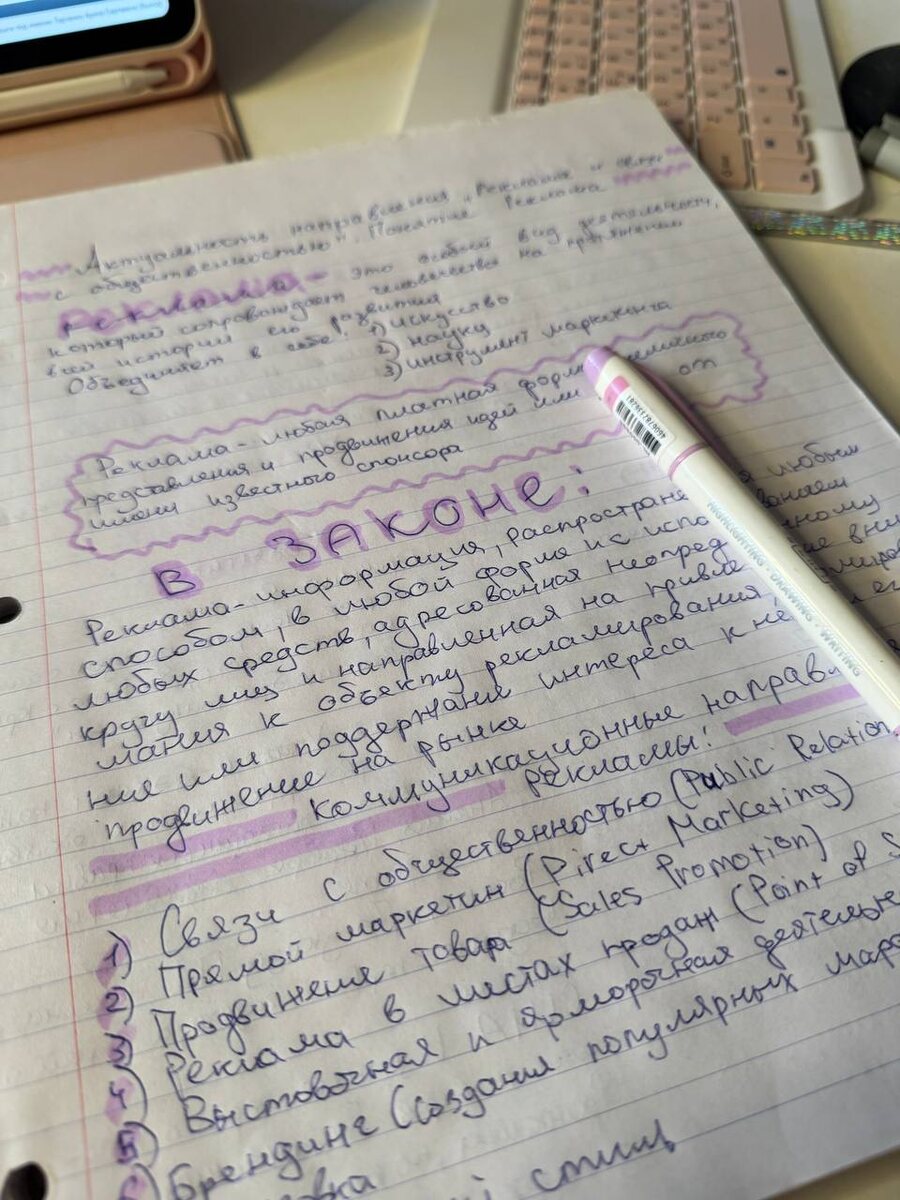 Актуальность направления „Реклама и связи
с общественностью". Понятие Реклама
Реклама – это особый вид деятельности,
который сопровождает человечество на протяжении
всей истории его развития
Объединяет в себе: 1) искусство
2) науку
3) инструмент маркетинга
Реклама – любая платная форма неличного
представления и продвижения идей или от
имени известного спонсора
В ЗАКОНЕ:
Реклама – информация, распростране любым
способом, в любой форме и с испо
любых средств, адресованная неопред нному
кругу лиц и направленная на привле ние вни
мания к объекту рекламирования,
ние или поддержание интереса к не
продвижение на рынке
Коммуникационные направл
рекламы:
1) Связи с общественностью (Public Relation
2) Прямой маркетин (Direct Marketing)
3) Продвижение товар (Sales Promotion)
4) Реклама в местах продаж (Point of S
5) Выстовочная и ярморочная деятельно
Брендинг (создания популярных маро
стиль
HIGHLIGHTING · DRAWING · WRITING